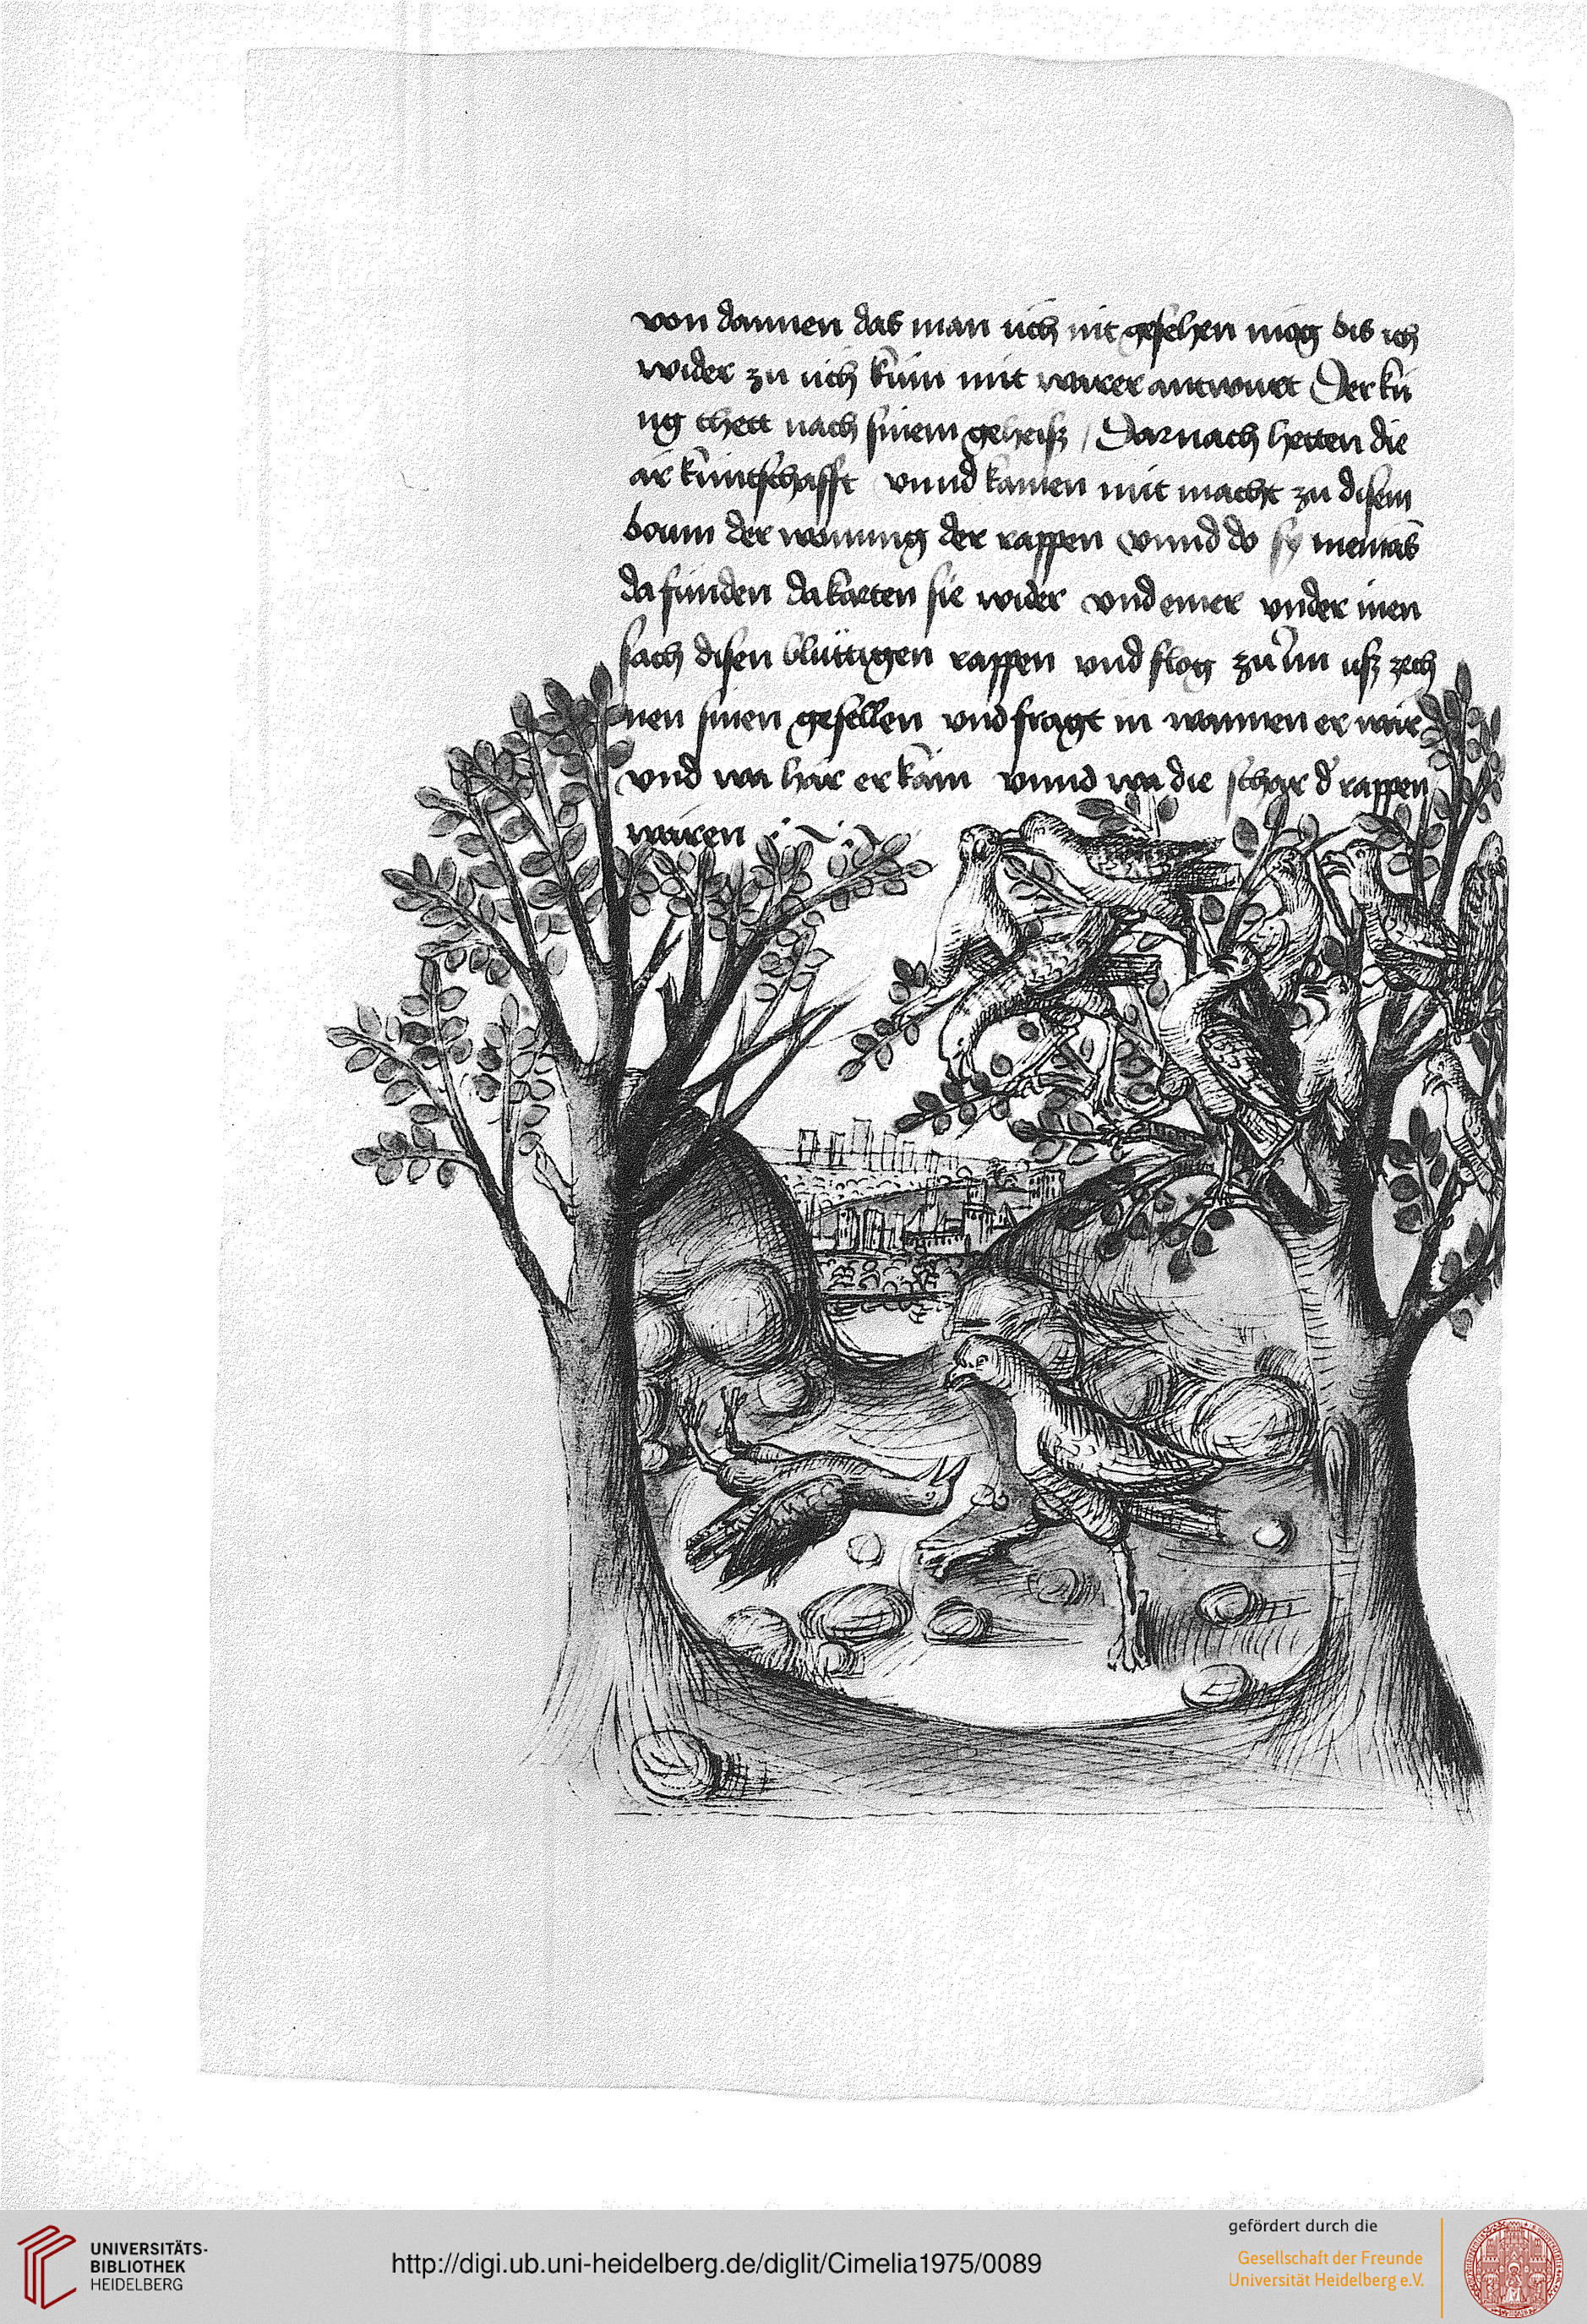 von dannen das man uch nit gesehen mög bis ich
wider zu uch kum mit warer antwurt Der kü
ng thett nach sinem geheisz / Darnach hetten die
är kuntschafft vnnd kamen mit macht zu disem
boum der wonung der rappen vnnd do sy niemās
da funden da karten sie wider vnd einer vnder inen
sach disen bluttigen rappen vnd flog zu im usz
nen sinen gesellen vnd fragt in wannen er wär
vnd wa här er käm vnnd wa die schar d rappen
wären
UNIVERSITÄTS-
BIBLIOTHEK
HEIDELBERG
http://digi.ub.uni-heidelberg.de/diglit/Cimelia1975/0089
gefördert durch die
Gesellschaft der Freunde
Universität Heidelberg e.V.